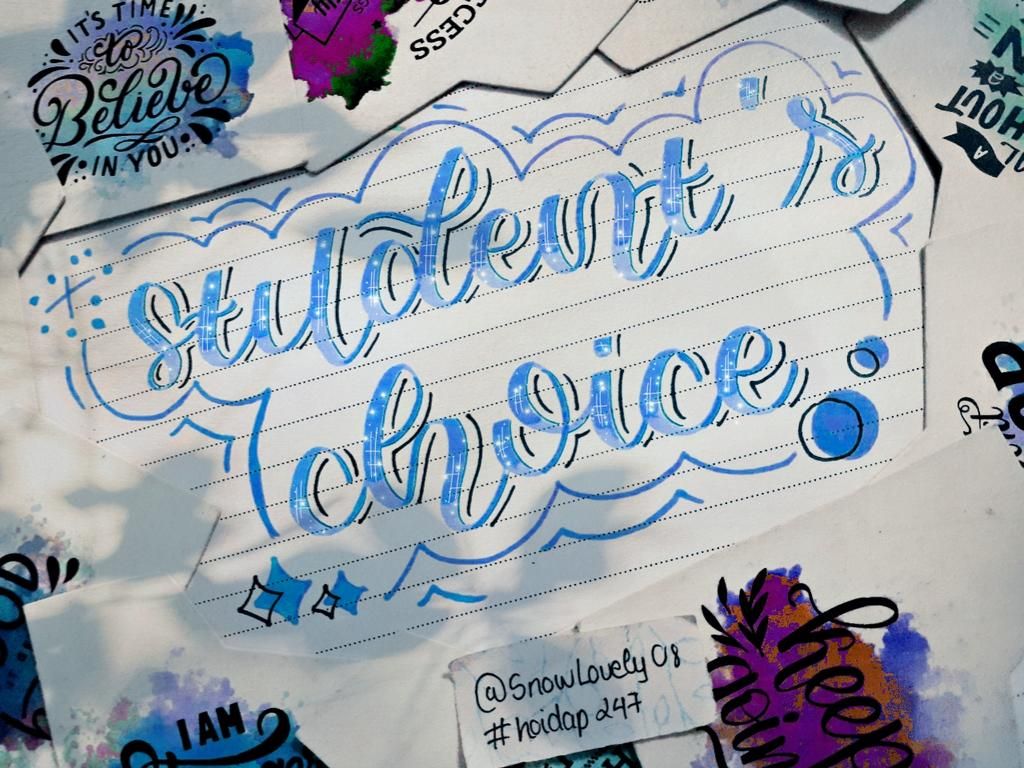 IT'S TIME
to
Believe
IN YOU
CCESS
HOUT
A
student's
choice
@SnowLovely08
#hoidap247
I AM
keep